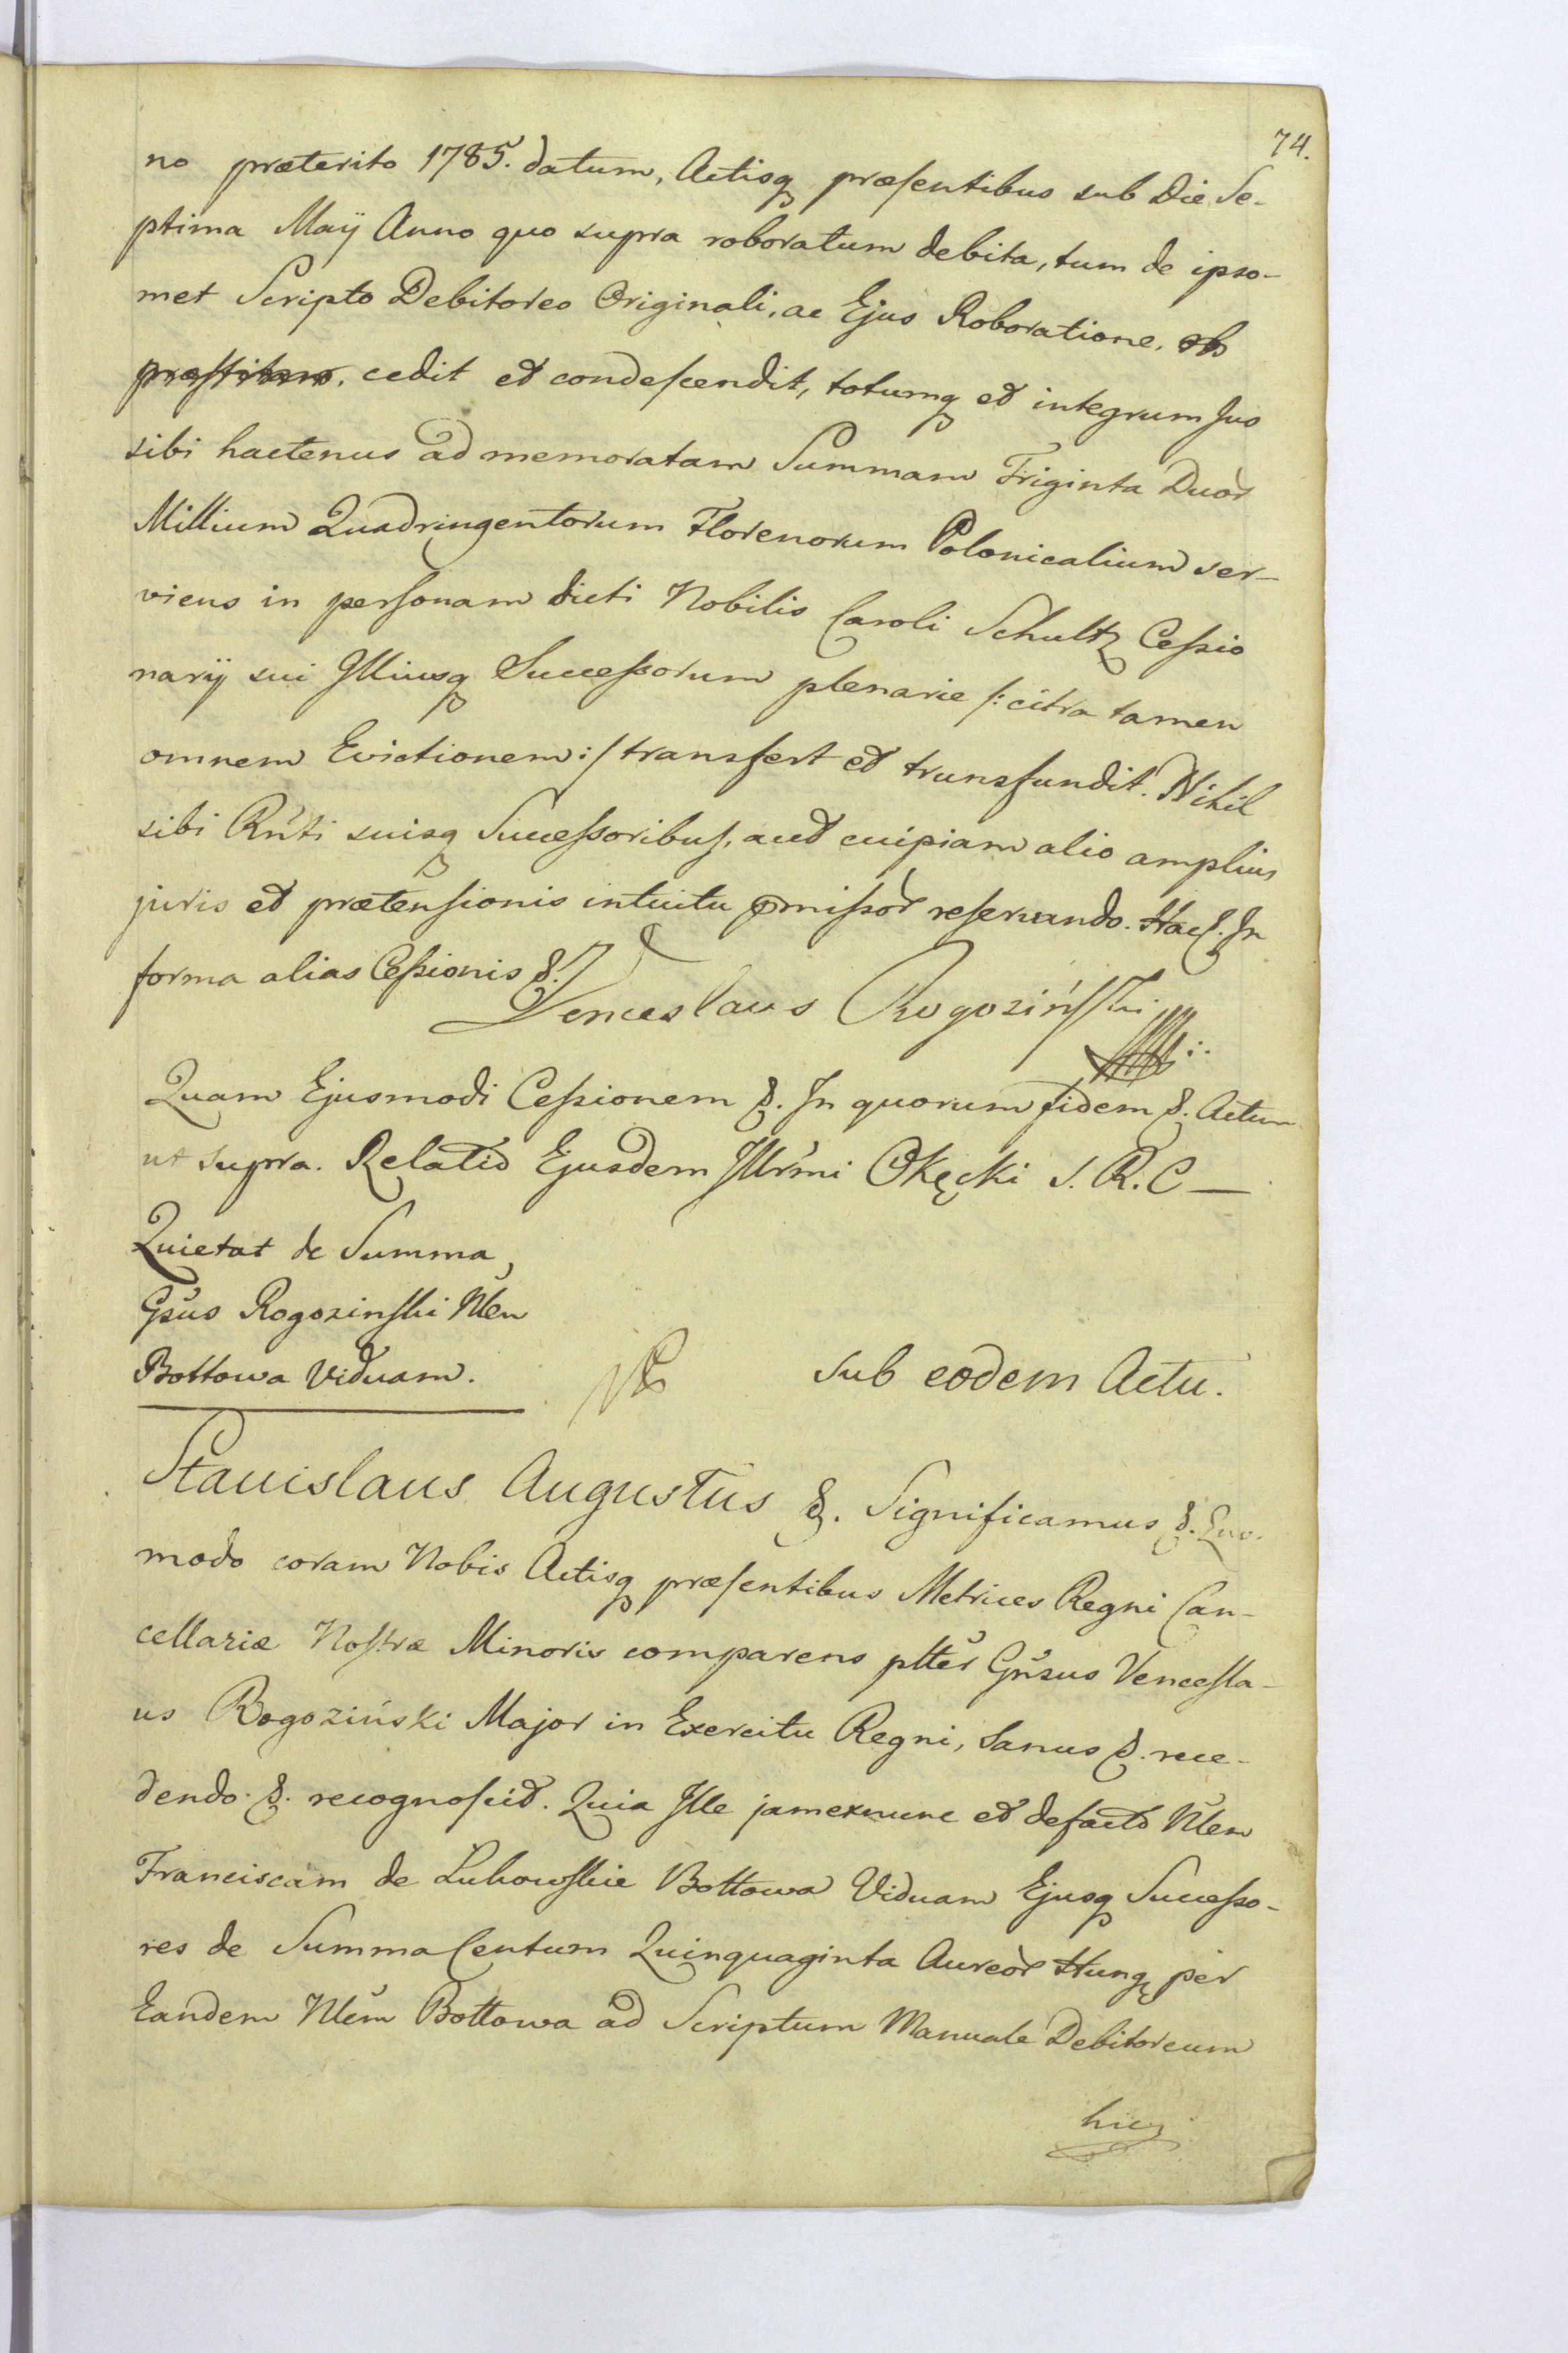 74.
no præterito 1785. datum, Actisq præsentibus sub Die Se-
ptima Maÿ Anno quo supra roboratum debita, tum de ipso-
met Scripto Debitoreo Originali, ac Ejus Roboratione,
cedit et condescendit, totumq et integrum Jus
sibi hactenus ad memoratam Summam Triginta Duor
Millium Quadringentorum Florenorum Polonicalium ser-
viens in personam dicti Nobilis Caroli Schultz Cessio
narÿ sui Illiusq Successorum plenarie /: citra tamen
omnem Evictionem :/ transfert et transfundit. Nihil
sibi Rn̄ti suisq Successoribus, aut cuipiam alio amplius
juris et prætensionis intuitu pmissor reservando. Hac &. In
forma alias Cessionis &.
Venceslaus Rogoziński
Quam Ejusmodi Cessionem &. In quorum fidem &. Actum
ut supra. Relatio Ejusdem Illr̄mi Okęcki S. R. C —
Quietat de Summa,
Gsus Rogozinski Nlem
Bottowa Viduam.
Sub eodem Actu.
Stanislaus Augustus &. Significamus &. Quo-
modo coram Nobis Actisq præsentibus Metrices Regni Can-
cellariæ Nostræ Minoris comparens plter Gn̄sus Vencesla-
us Rogoziński Major in Exercitu Regni, Sanus &. rece-
dendo &. recognoscit. Quia Ille jamexnunc et defacto Nlem
Franciscam de Lubowskie Bottowa Viduam Ejusq Successo-
res de Summa Centum Quinquaginta Aureor Hung per
Eandem Nlem Bottowa ad Scriptum Manuale Debitoreum
hic